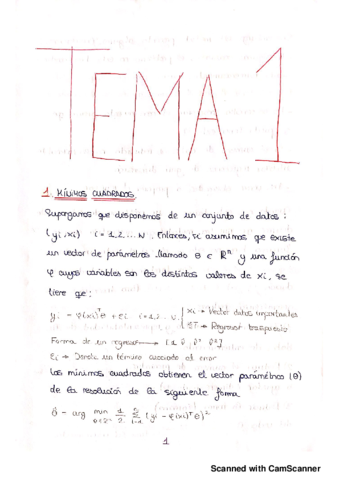 TEMA 1
1. MÍNIMOS CUADRADOS
Supongamos que disponemos de un conjunto de datos:
(yi, xi) i = 1,2,... N. Entonces, si asumimos que existe
un vector de parámetros llamado θ ∈ ℝⁿ y una función
φ cuyas variables son los distintos valores de xi, se
tiene que:
yi = φ(xi)ᵀθ + εi i = 1,2... N. | xi → Vector datos importantes
φT → Regresor traspuesto
Forma de un regresor → [1 P
εi → Denota un término asociado al error
Los mínimos cuadrados obtienen el vector paramétrico (θ)
de la resolución de la siguiente forma
θ̂ = arg min 1/2 Σ (yi - φ(xi)ᵀθ)²
1
Scanned with CamScanner